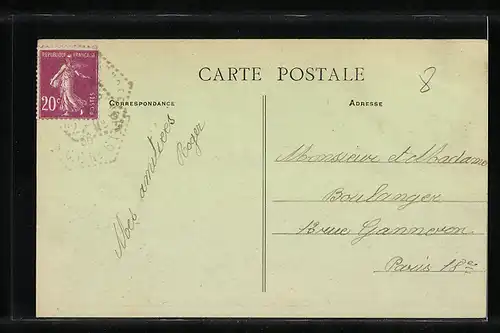 REPUBLIQUE FRANCAISE
20c
POSTES
CARTE POSTALE
8
CORRESPONDANCE
ADRESSE
Nos amitiées
Roger
Monsieur et Madame
Boulanger
rue Ganneron
Paris 18e